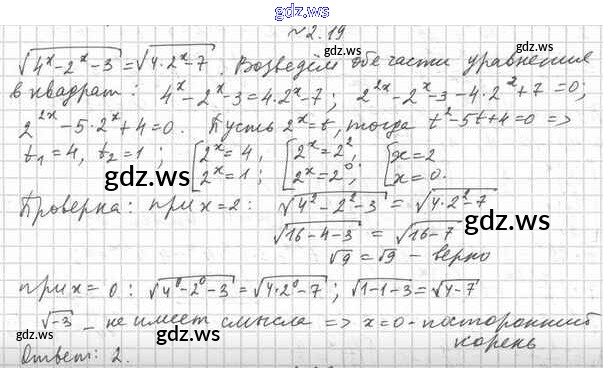 gdz.ws
№2.19
√(4ˣ-2ˣ-3) = √(4·2ˣ-7). Возведём обе части уравнения
в квадрат: 4ˣ-2ˣ-3=4·2ˣ-7; 2²ˣ-2ˣ-3-4·2²+7=0;
2²ˣ-5·2ˣ+4=0. Пусть 2ˣ=t, тогда t²-5t+4=0 =>
t₁=4, t₂=1; [2ˣ=4, 2ˣ=1; [2ˣ=2², 2ˣ=2⁰; [x=2 x=0.
Проверка: при x=2: √(4²-2²-3) = √(4·2²-7)
√(16-4-3) = √(16-7)
√9 = √9 - верно
при x=0: √(4⁰-2⁰-3) = √(4·2⁰-7); √(1-1-3) = √(4-7)
√-3 - не имеет смысла => x=0 - посторонний
корень
Ответ: 2.
gdz.ws
gdz.ws
gdz.ws
gdz.ws
gdz.ws